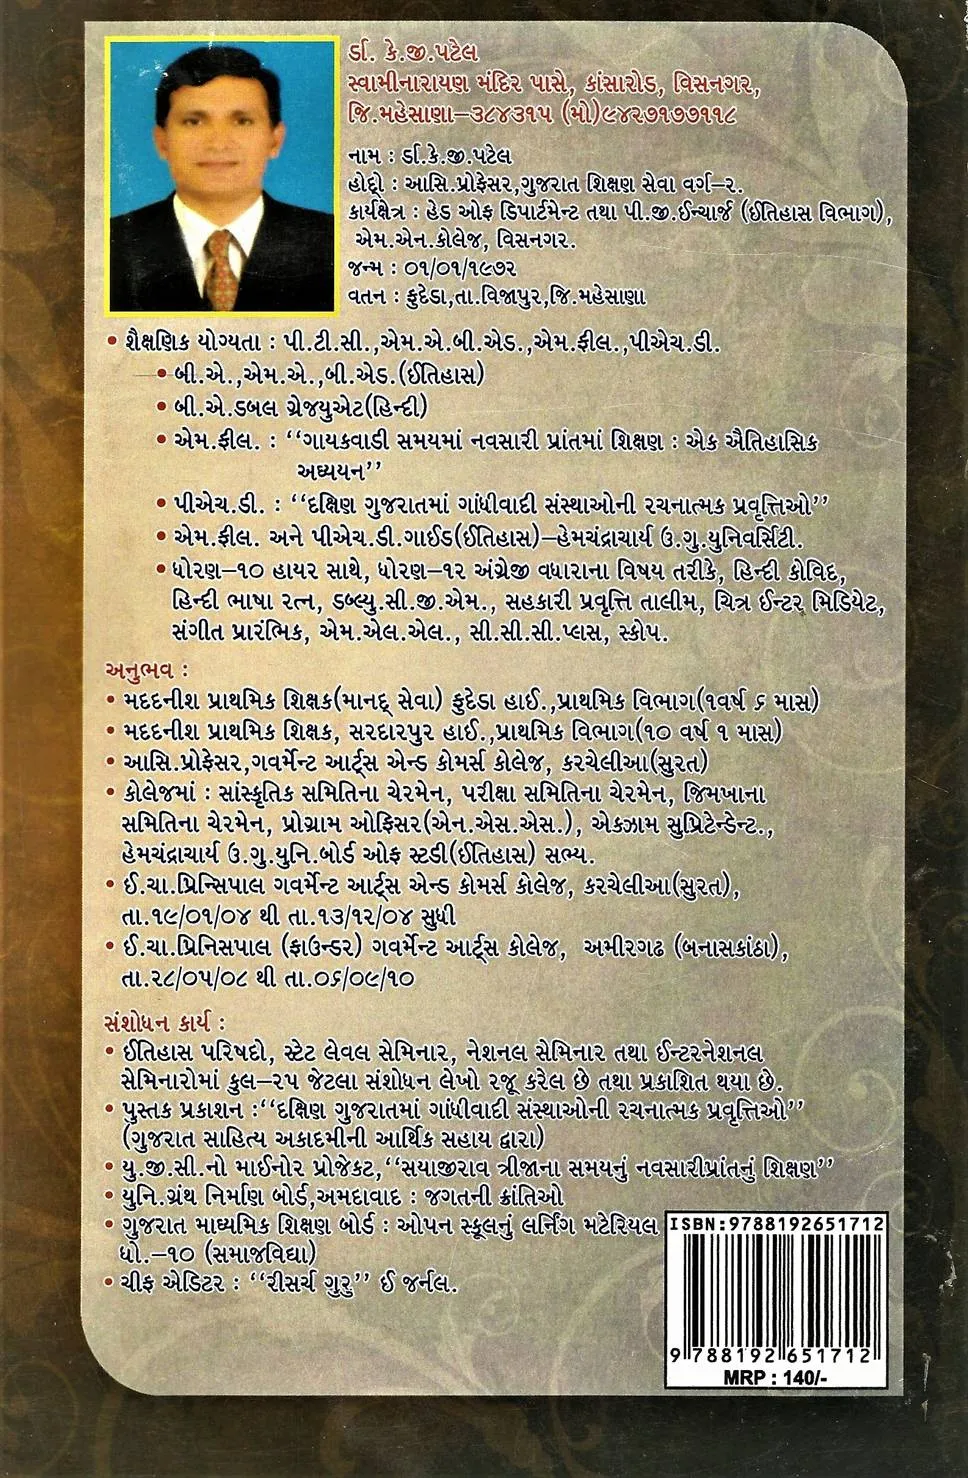 ર્ડા. કે.જી.પટેલ
સ્વામીનારાયણ મંદિર પાસે, કાંસારોડ, વિસનગર,
જિ.મહેસાણા–૩૮૪૩૧૫ (મો)૯૪૨૭૧૭૭૧૧૮
નામ : ર્ડા.કે.જી.પટેલ
હોદ્દો : આસિ.પ્રોફેસર,ગુજરાત શિક્ષણ સેવા વર્ગ–૨.
કાર્યક્ષેત્ર : હેડ ઓફ ડિપાર્ટમેન્ટ તથા પી.જી.ઈન્ચાર્જ (ઈતિહાસ વિભાગ),
એમ.એન.કોલેજ, વિસનગર.
જન્મ : ૦૧/૦૧/૧૯૭૨
વતન : ફુદેડા,તા.વિજાપુર,જિ.મહેસાણા
• શૈક્ષણિક યોગ્યતા : પી.ટી.સી.,એમ.એ.બી.એડ.,એમ.ફીલ.,પીએચ.ડી.
• બી.એ.,એમ.એ.,બી.એડ.(ઈતિહાસ)
• બી.એ.ડબલ ગ્રેજયુએટ(હિન્દી)
• એમ.ફીલ. : ‘‘ગાયકવાડી સમયમાં નવસારી પ્રાંતમાં શિક્ષણ : એક ઐતિહાસિક
અધ્યયન’’
• પીએચ.ડી. : ‘‘દક્ષિણ ગુજરાતમાં ગાંધીવાદી સંસ્થાઓની રચનાત્મક પ્રવૃત્તિઓ’’
• એમ.ફીલ. અને પીએચ.ડી.ગાઈડ(ઈતિહાસ)–હેમચંદ્રાચાર્ય ઉ.ગુ.યુનિવર્સિટી.
• ધોરણ–૧૦ હાયર સાથે, ધોરણ–૧૨ અંગ્રેજી વધારાના વિષય તરીકે, હિન્દી કોવિદ,
હિન્દી ભાષા રત્ન, ડબ્લ્યુ.સી.જી.એમ., સહકારી પ્રવૃત્તિ તાલીમ, ચિત્ર ઈન્ટર મિડિયેટ,
સંગીત પ્રારંભિક, એમ.એલ.એલ., સી.સી.સી.પ્લસ, સ્કોપ.
અનુભવ :
• મદદનીશ પ્રાથમિક શિક્ષક(માનદ્ સેવા) ફુદેડા હાઈ.,પ્રાથમિક વિભાગ(૧વર્ષ ૬ માસ)
• મદદનીશ પ્રાથમિક શિક્ષક, સરદારપુર હાઈ.,પ્રાથમિક વિભાગ(૧૦ વર્ષ ૧ માસ)
• આસિ.પ્રોફેસર,ગવર્મેન્ટ આર્ટ્સ એન્ડ કોમર્સ કોલેજ, કરચેલીઆ(સુરત)
• કોલેજમાં : સાંસ્કૃતિક સમિતિના ચેરમેન, પરીક્ષા સમિતિના ચેરમેન, જિમખાના
સમિતિના ચેરમેન, પ્રોગ્રામ ઓફિસર(એન.એસ.એસ.), એકઝામ સુપ્રિટેન્ડેન્ટ.,
હેમચંદ્રાચાર્ય ઉ.ગુ.યુનિ.બોર્ડ ઓફ સ્ટડી(ઈતિહાસ) સભ્ય.
• ઈ.ચા.પ્રિન્સિપાલ ગવર્મેન્ટ આર્ટ્સ એન્ડ કોમર્સ કોલેજ, કરચેલીઆ(સુરત),
તા.૧૯/૦૧/૦૪ થી તા.૧૩/૧૨/૦૪ સુધી
• ઈ.ચા.પ્રિનિસપાલ (ફાઉન્ડર) ગવર્મેન્ટ આર્ટ્સ કોલેજ, અમીરગઢ (બનાસકાંઠા),
તા.૨૮/૦૫/૦૮ થી તા.૦૬/૦૯/૧૦
સંશોધન કાર્ય :
• ઈતિહાસ પરિષદો, સ્ટેટ લેવલ સેમિનાર, નેશનલ સેમિનાર તથા ઈન્ટરનેશનલ
સેમિનારોમાં કુલ–૨૫ જેટલા સંશોધન લેખો રજૂ કરેલ છે તથા પ્રકાશિત થયા છે.
• પુસ્તક પ્રકાશન :‘‘દક્ષિણ ગુજરાતમાં ગાંધીવાદી સંસ્થાઓની રચનાત્મક પ્રવૃત્તિઓ’’
(ગુજરાત સાહિત્ય અકાદમીની આર્થિક સહાય દ્વારા)
• યુ.જી.સી.નો માઈનોર પ્રોજેકટ,‘‘સયાજીરાવ ત્રીજાના સમયનું નવસારીપ્રાંતનું શિક્ષણ’’
• યુનિ.ગ્રંથ નિર્માણ બોર્ડ,અમદાવાદ : જગતની ક્રાંતિઓ
• ગુજરાત માધ્યમિક શિક્ષણ બોર્ડ : ઓપન સ્કૂલનું લર્નિંગ મટેરિયલ
ધો.–૧૦ (સમાજવિદ્યા)
• ચીફ એડિટર : ‘‘રીસર્ચ ગુરુ’’ ઈ જર્નલ.
ISBN:9788192651712
9 788192 651712
MRP : 140/-